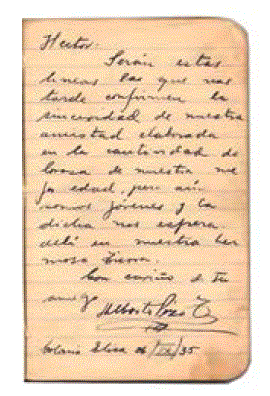 Hector:
Serán estas
lineas las que mas
tarde confirmen la
sinceridad de nuestra
amistad elaborada
en la cantidad de
de nuestra me
jor edad, pero aún
somos jóvenes y la
dicha nos espera
allí en nuestra her
mosa tierra.
Con cariño de tu
amigo
Alberto
Colonia Elisa 26/ /35